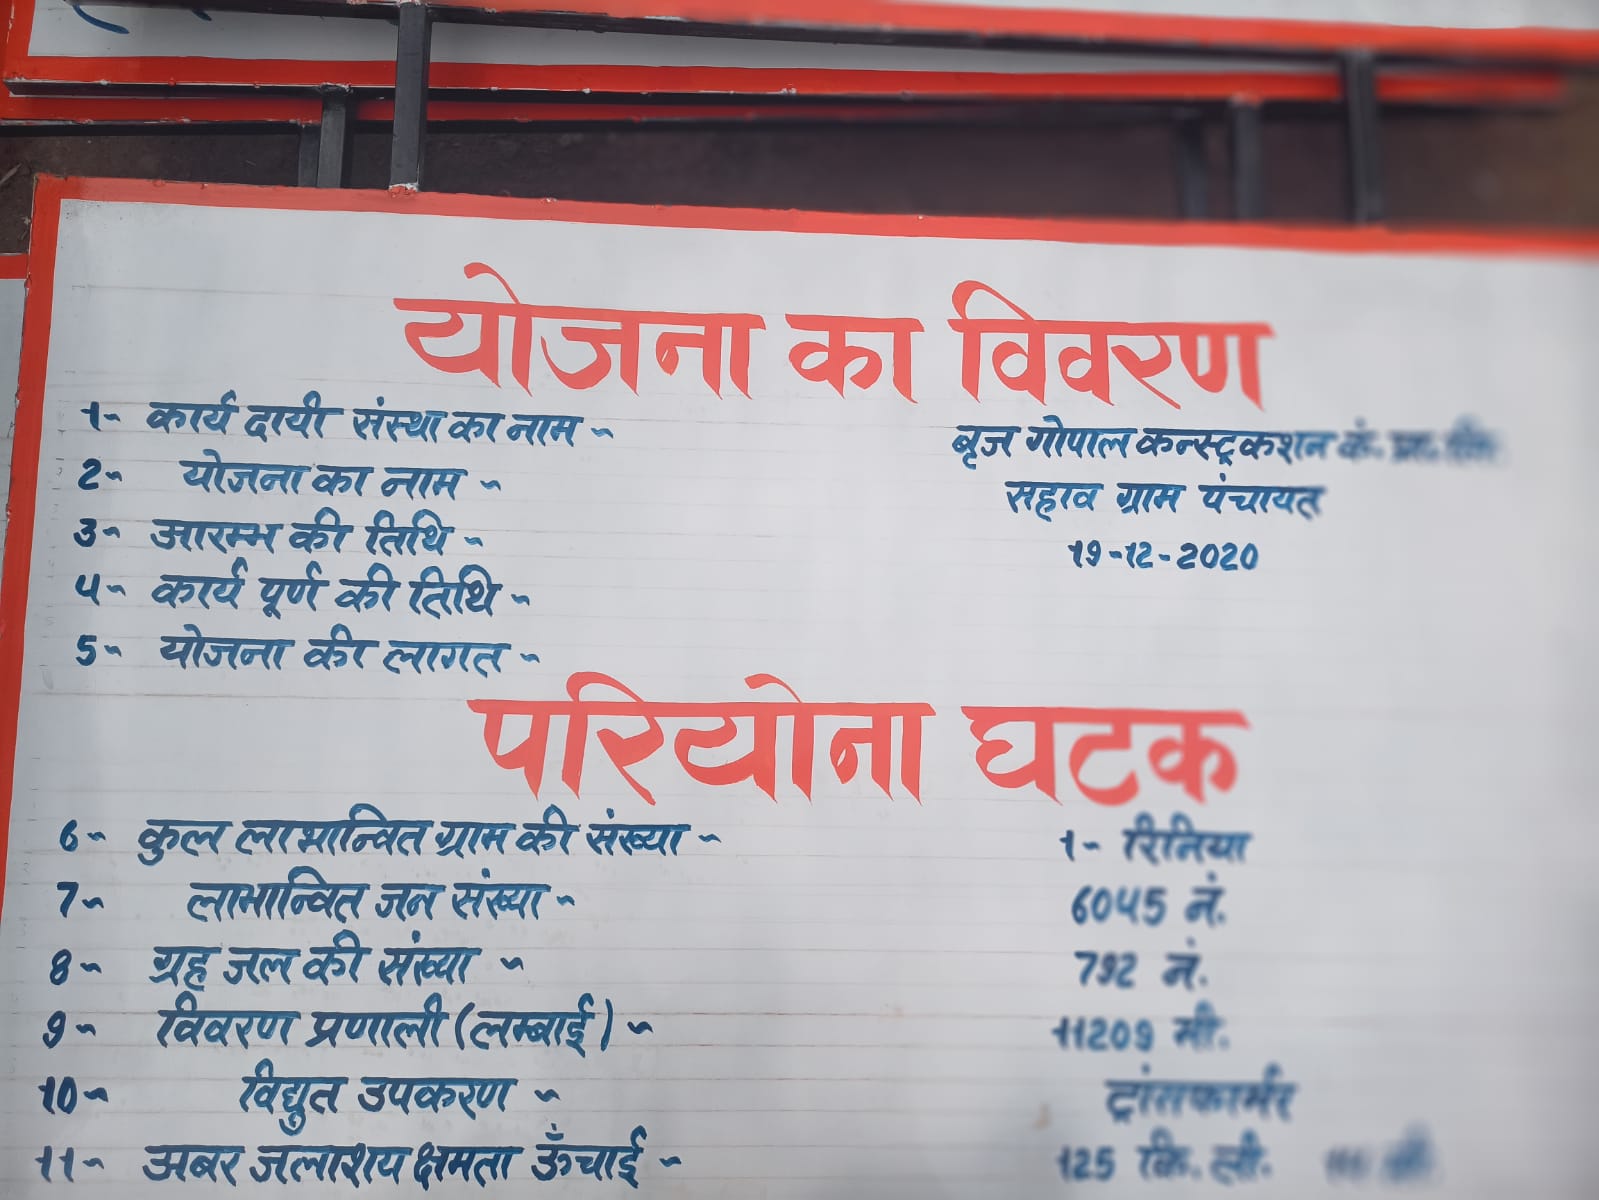 योजना का विवरण
1- कार्य दायी संस्था का नाम - बृज गोपाल कन्स्ट्रकशन कं. प्रा. लि.
2- योजना का नाम - सहाव ग्राम पंचायत
3- आरम्भ की तिथि - 19-12-2020
4- कार्य पूर्ण की तिथि -
5- योजना की लागत -
परियोना घटक
6- कुल लाभान्वित ग्राम की संख्या - 1- रिनिया
7- लाभान्वित जन संख्या - 6045 नं.
8- ग्रह जल की संख्या - 792 नं.
9- विवरण प्रणाली (लम्बाई) - 11209 मी.
10- विद्युत उपकरण - ट्रांसफार्मर
11- अबर जलाशय क्षमता ऊँचाई - 125 कि. ली.